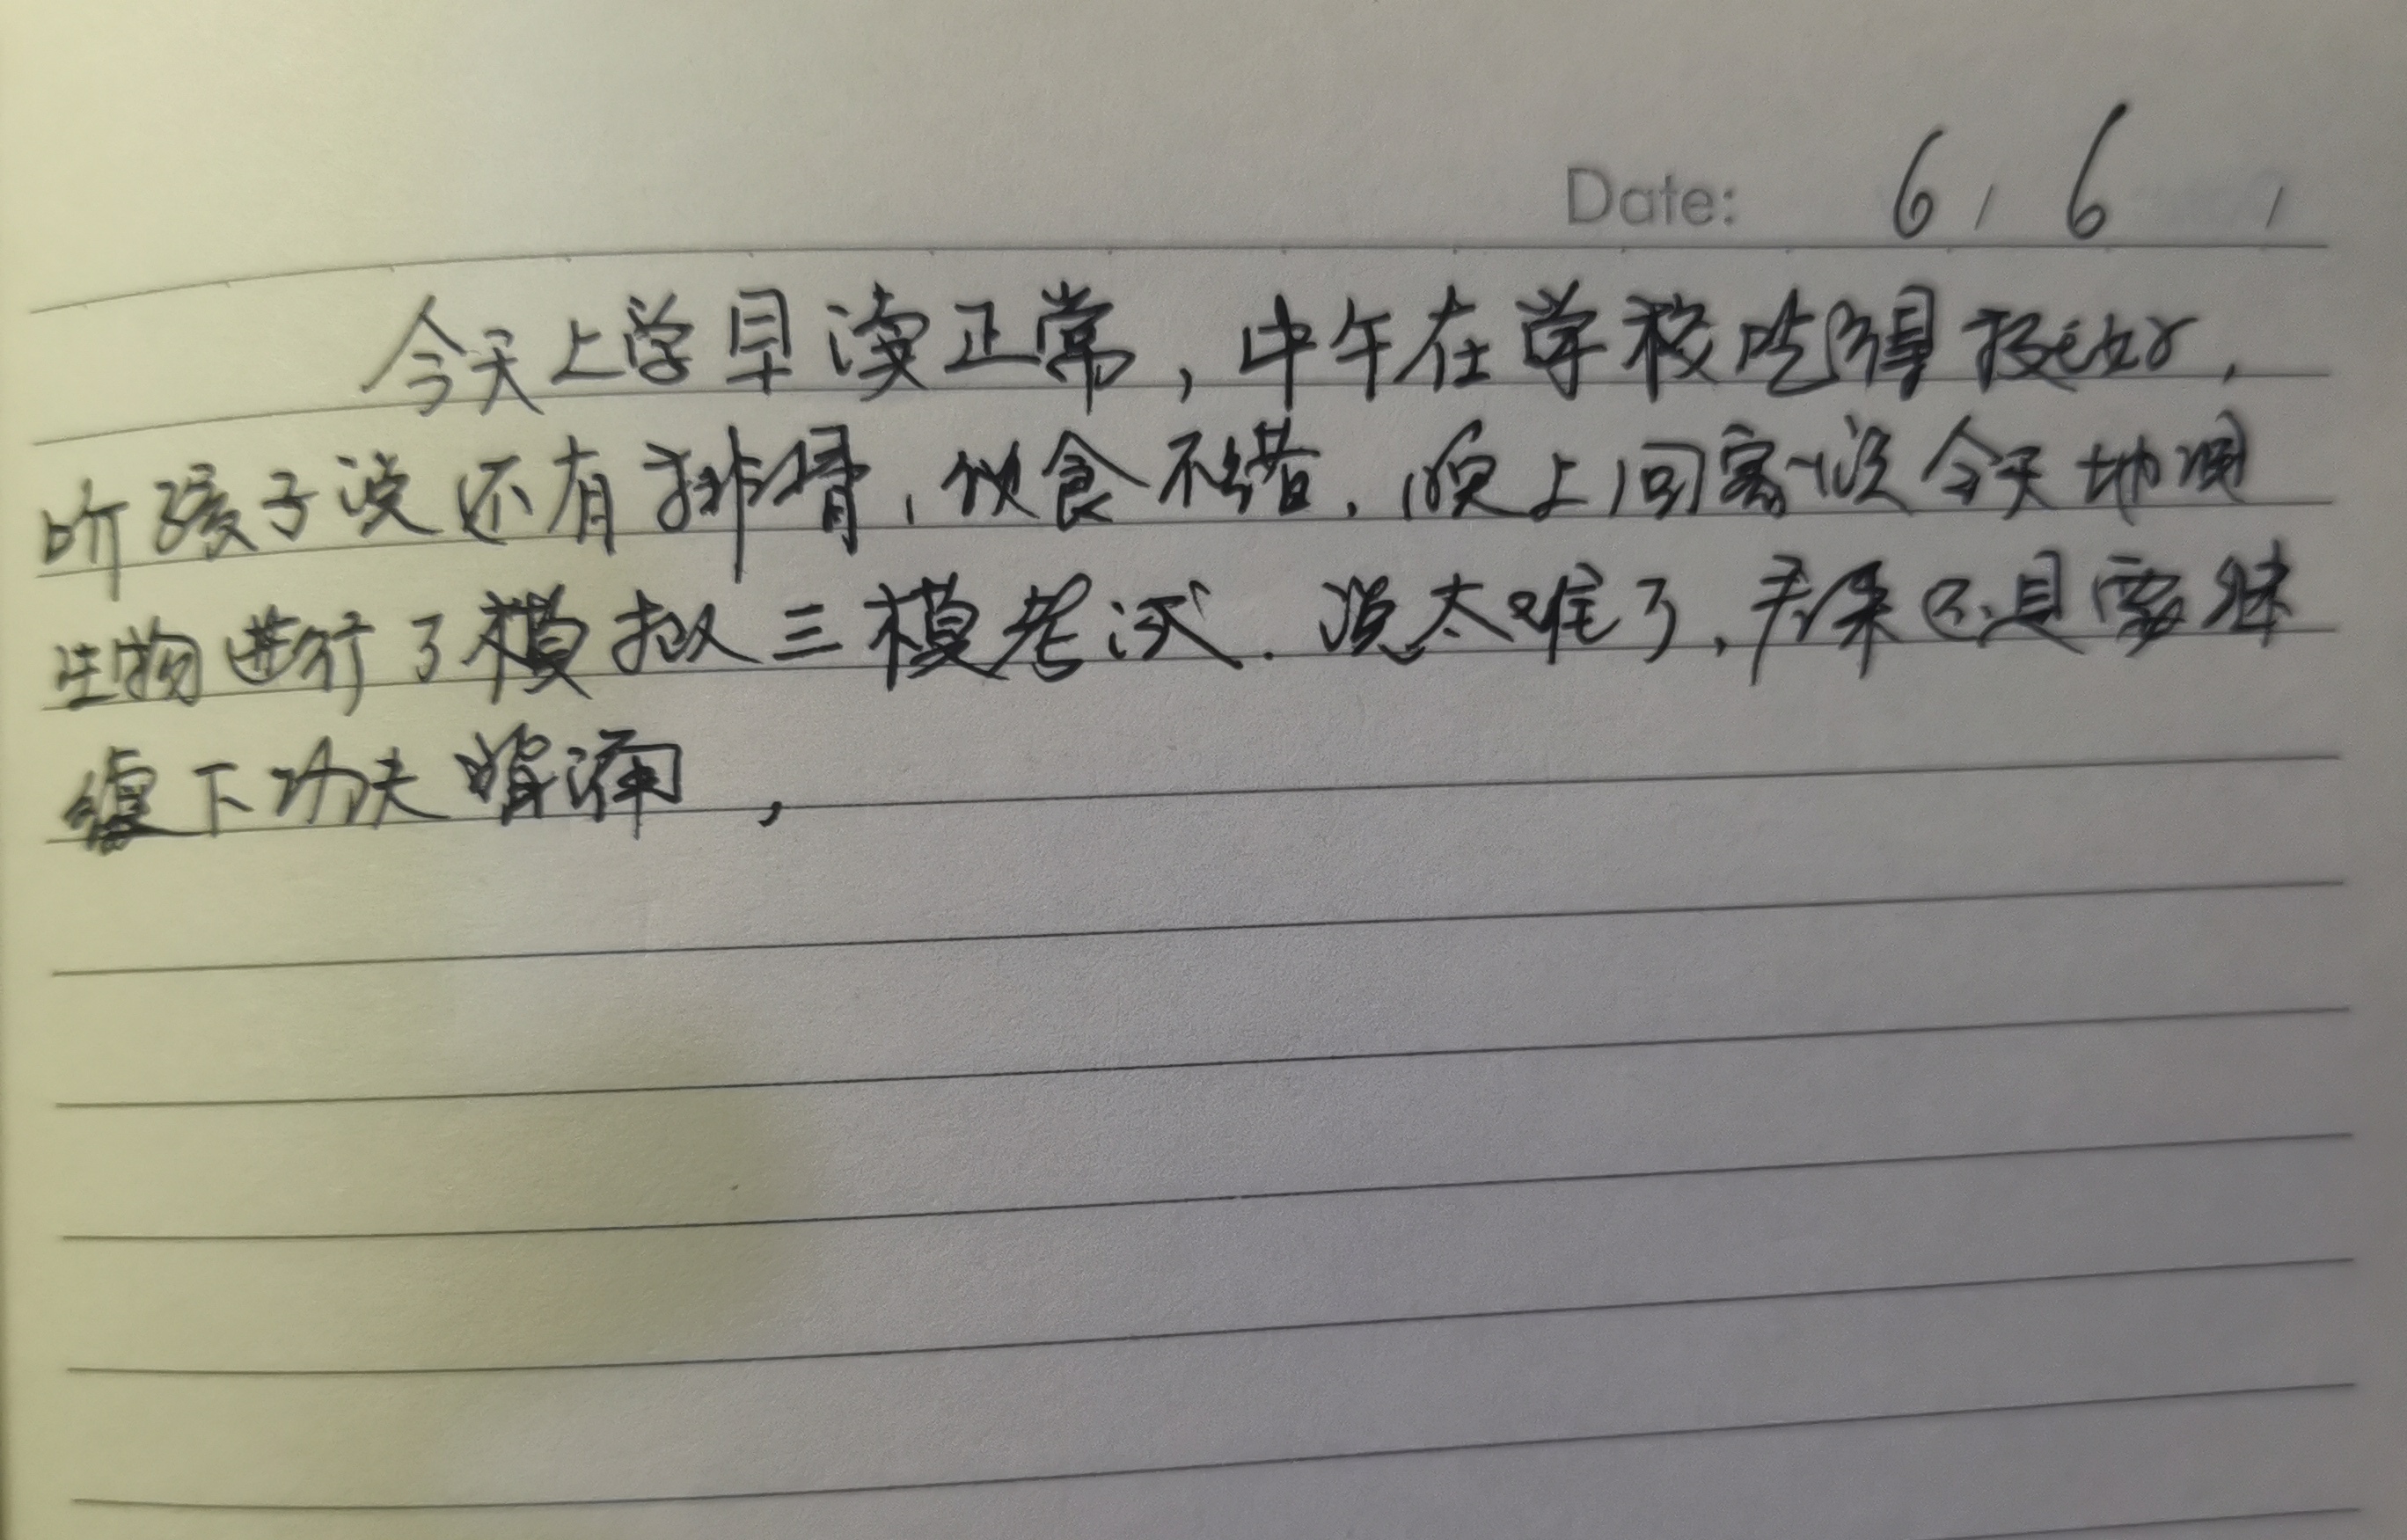 Date: 6 / 6 /
今天上学早读正常，中午在学校吃得挺好，
听孩子说还有排骨，饮食不错，晚上回家说今天地
生物进行了模拟三模考试．说太难了，看来还是需继
续下功夫